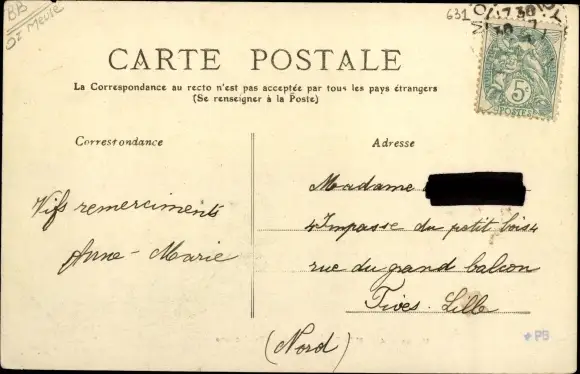 631
CARTE POSTALE
La Correspondance au recto n'est pas acceptée par tous les pays étrangers
(Se renseigner à la Poste)
5c
POSTES
Correspondance
Adresse
Vifs remerciments
Anne-Marie
Madame
4 Impasse du petit bois 4
rue du grand balcon
Fives-Lille
(Nord)
PG